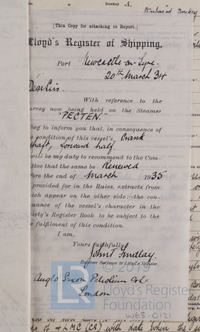 [This Copy for attaching to Report.]
Lloyd's Register of Shipping,
Port Newcastle-on-Tyne.
20th March 34
Dear Sirs
With reference to the
survey now being held on the Steamer
"PECTEN."
beg to inform you that, in consequence of
condition of this vessel's Crank
shaft, forward half
will be my duty to recommend to the Com-
that the same be Renewed
the end of March 1935
provided for in the Rules, extracts from
which appear on the other side:—the con-
tinuance of the vessel's character in the
Society's Register Book to be subject to the
fulfilment of this condition.
I am,
Yours faithfully
John Findlay
Engineer Surveyor to Lloyd's Register
Anglo Saxon Petroleum Co Ld
London
© 2019
Lloyd's Register
Foundation